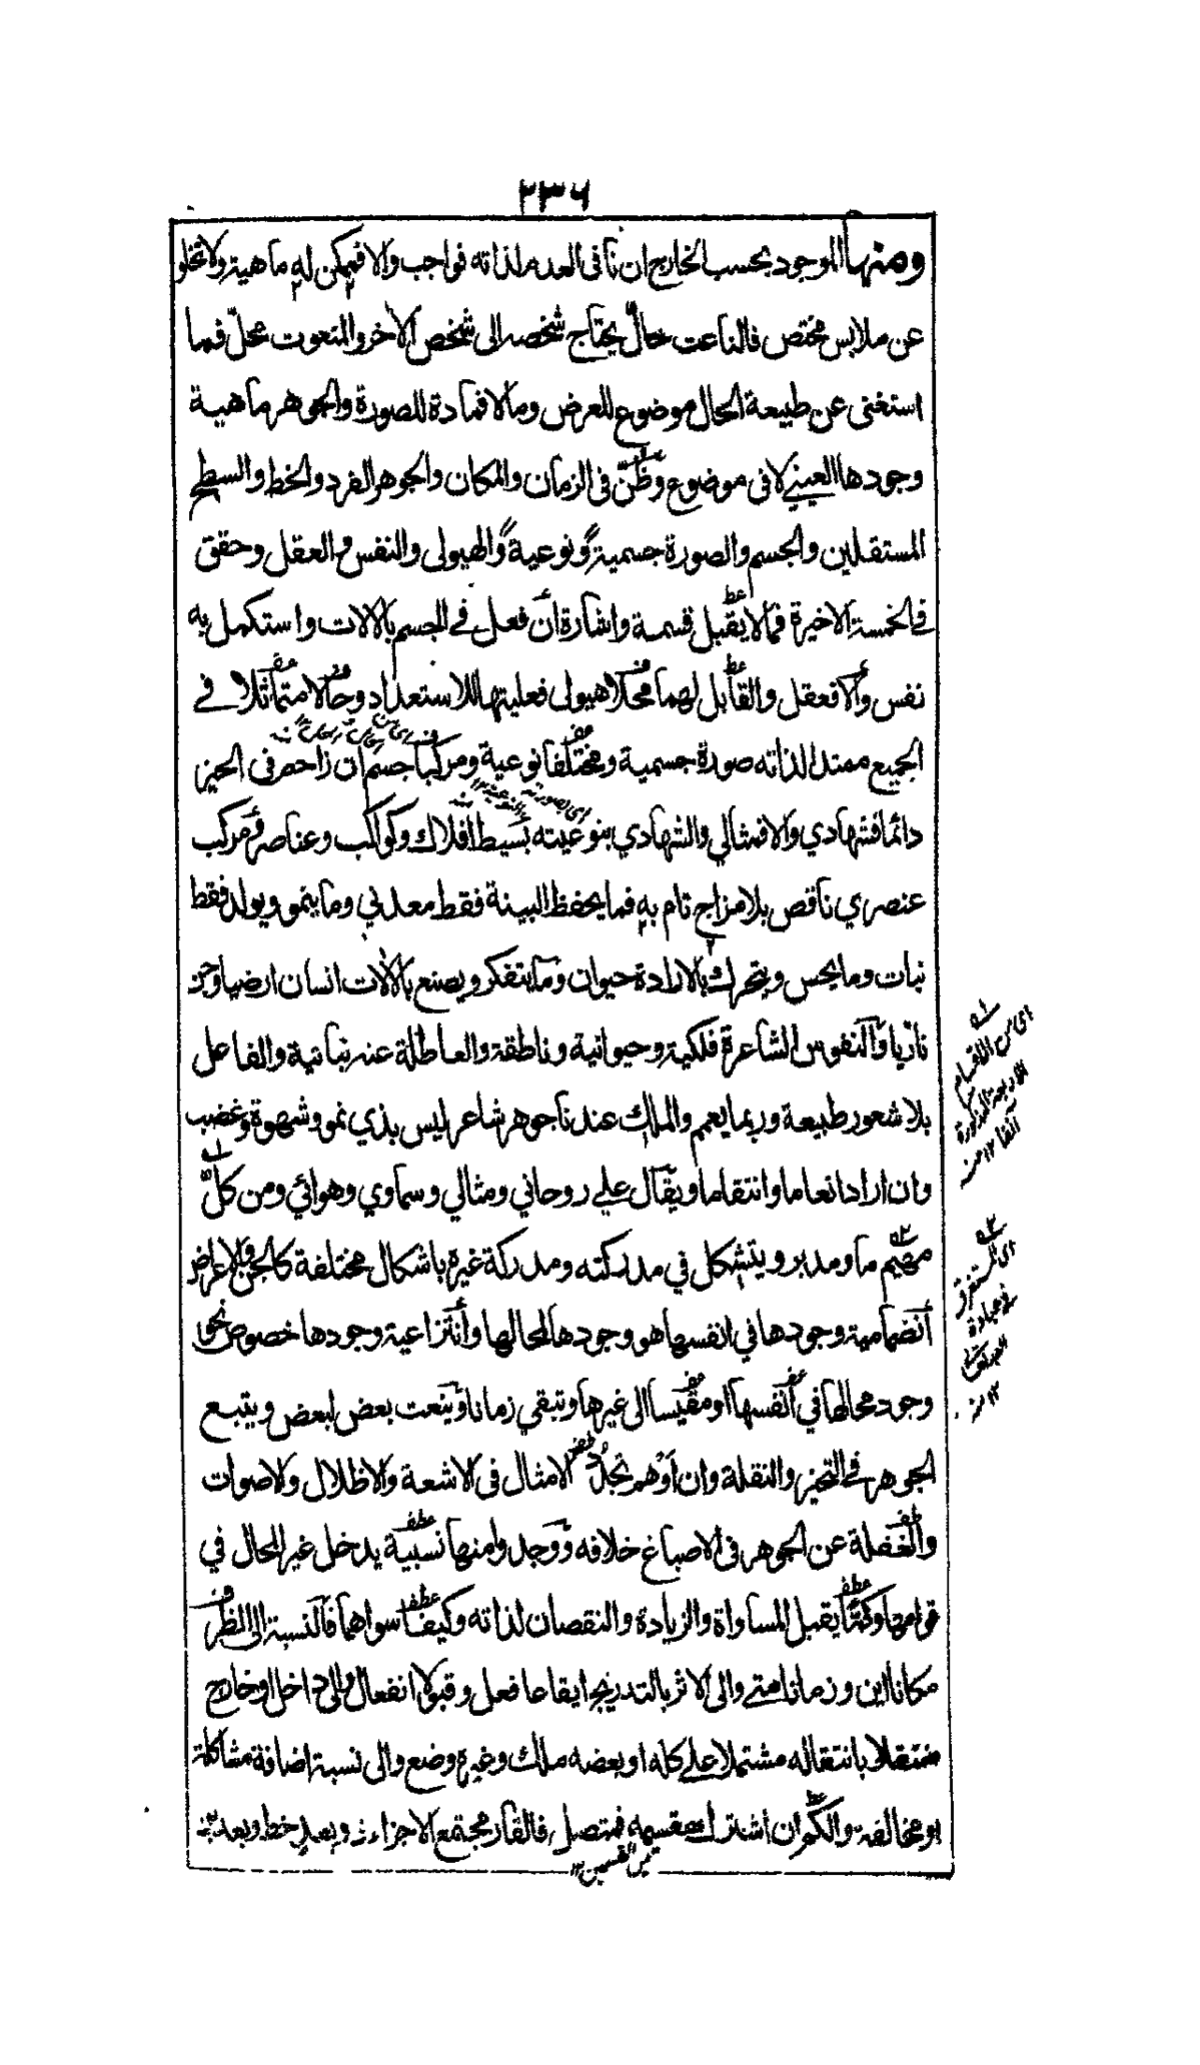 ٢٣٦
ومنها الموجود بحسب الخارج ان نافى العدم لذاته فواجب والا فممكن له ماهية ولا تخلو
عن ملابس مختص فالناعت حال يحتاج شخصه الى شخص الاخر والمنعوت محل فما
استغنى عن طبيعة الحال موضوع للعرض ومالا فمادة للصورة والجوهر ماهية
وجودها العيني لا فى موضوع وظن فى الزمان والمكان والجوهر الفرد والخط والسطح
المستقلين والجسم والصورة جسمية ونوعية والهيولى والنفس والعقل وحقق
في الخمسة الاخيرة فما لا يقبل قسمة واشارة ان فعل في الجسم بالالات واستكمل به
نفس والا فعقل والقابل لهما محلا هيولى فعليتها للاستعداد وحالا متماثلا في
الجميع ممتدا لذاته صورة جسمية ومختلفا نوعية ومركبا جسم ان زاحم فى الحيز
دائما فشهادي والا فمثالي والشهادي بنوعيته بسيط افلاك وكواكب وعناصر ومركب
عنصري ناقص بلا مزاج تام به فما يحفظ البينة فقط معدني وما ينمو ويولد فقط
نبات وما يحس ويتحرك بالارادة حيوان وما يتفكر ويصنع بالالات انسان ارضيا وجن
ناريا والنفوس الشاعرة فلكية وحيوانية وناطقة والعاطلة عنه نباتية والفاعل
بلا شعور طبيعة وربما يعم والملك عندنا جوهر شاعر ليس بذي نمو وشهوة وغضب
وان اراد انعاما وانتقاما ويقال علي روحاني ومثالي وسماوي وهوائي ومن كل
مهيم ما ومدبر ويتشكل في مدركته ومدركة غيره باشكال مختلفة كالجن والاعراض
انضمامية وجودها في انفسها هو وجودها لمحالها وانتزاعية وجودها خصوص نحو
وجود محالها في انفسها او مقيسا الى غيرها وتبقي زمانا وينعت بعض لبعض ويتبع
الجوهر في التحيز والنقلة وان اوهم تجدد الامثال فى الاشعة والاظلال والاصوات
والغفلة عن الجوهر فى الاصباغ خلافه ووجدوا منها نسبية يدخل غير المحال في
قوامها وكما يقبل المساواة والزيادة والنقصان لذاته وكيفا سواهما فالنسبة الى الظرف
مكانا اين وزمانا متى والى الاثر بالتدريج ايقاعا فعل وقبولا انفعال والى داخل او خارج
منتقلا بانتقاله مشتملا على كله او بعضه ملك وغيره وضع والى نسبة اضافة مشاكلة
او مخالفة والكم ان اشترك مقسمه فمتصل فالقار مجتمع الاجزاء ذو بعد خط وبعدين
بين القسمين ١٢
اى من الاقسام
الاربعة المذكورة
آنفا ١٢ منه
اى المستغرق
في عبادة
١٢ منه